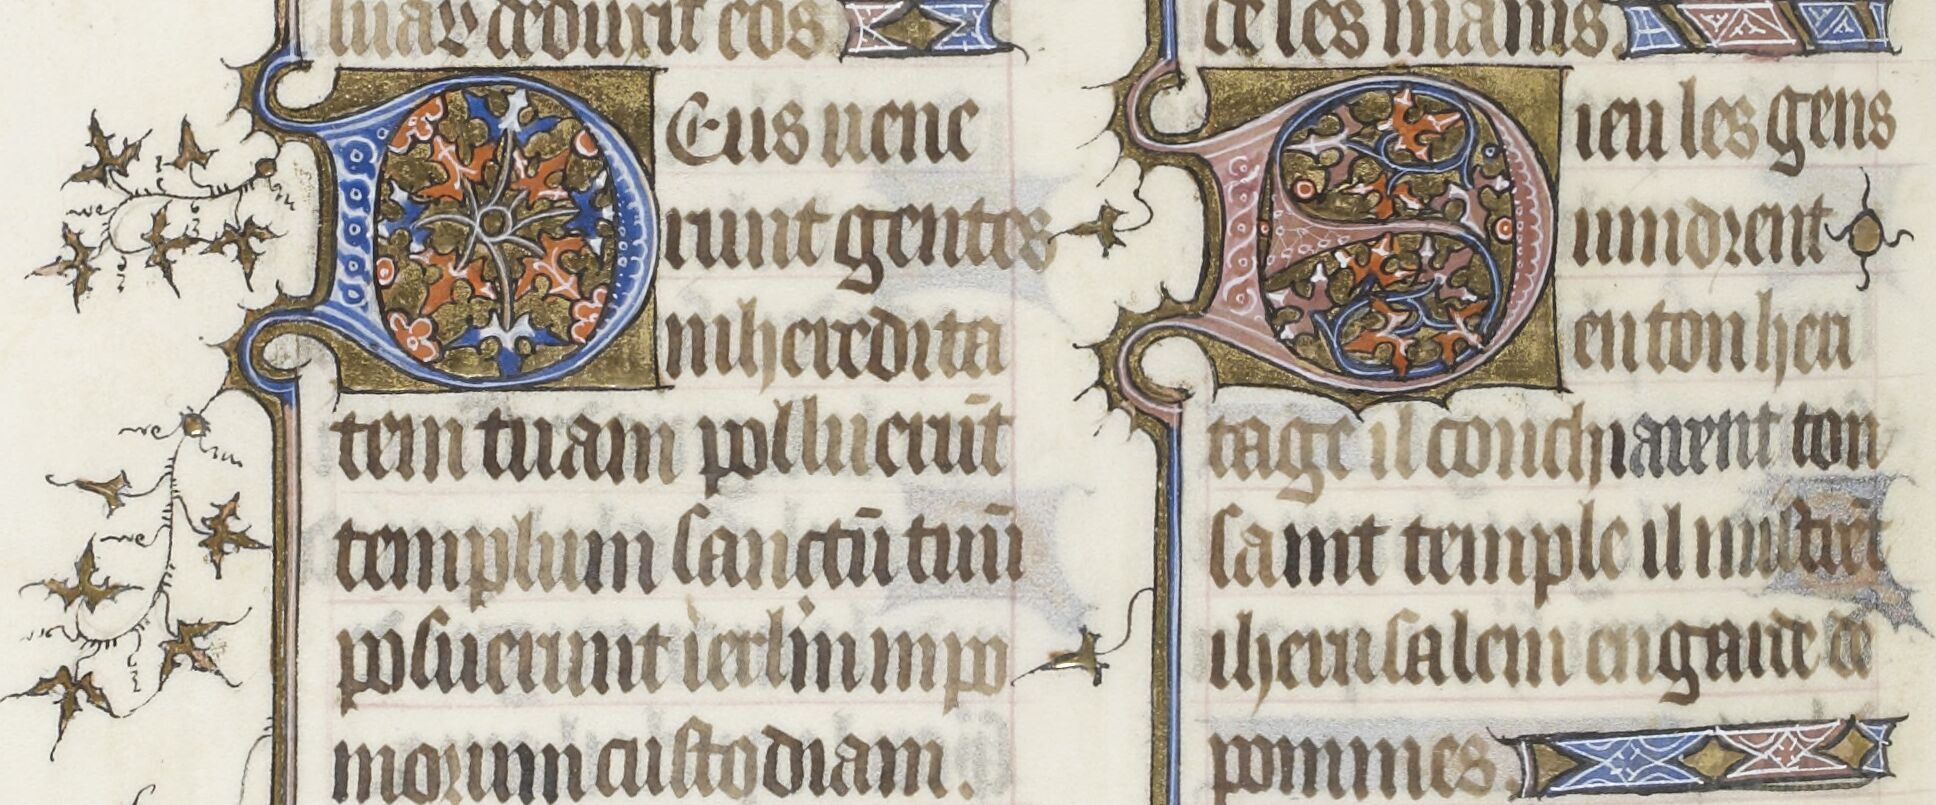 suaꝝ deduxit eos
DEus uene
runt gentes
in heredita
tem tuam polluerūt
templum sanctū tuū
posuerunt ierl'm in po
morum custodiam.
de ses mains.
Dieu les gens
uindrent
en ton heri
tage il conchiarent ton
saint temple il mistrēt
iherusalem en garde de
pommes.